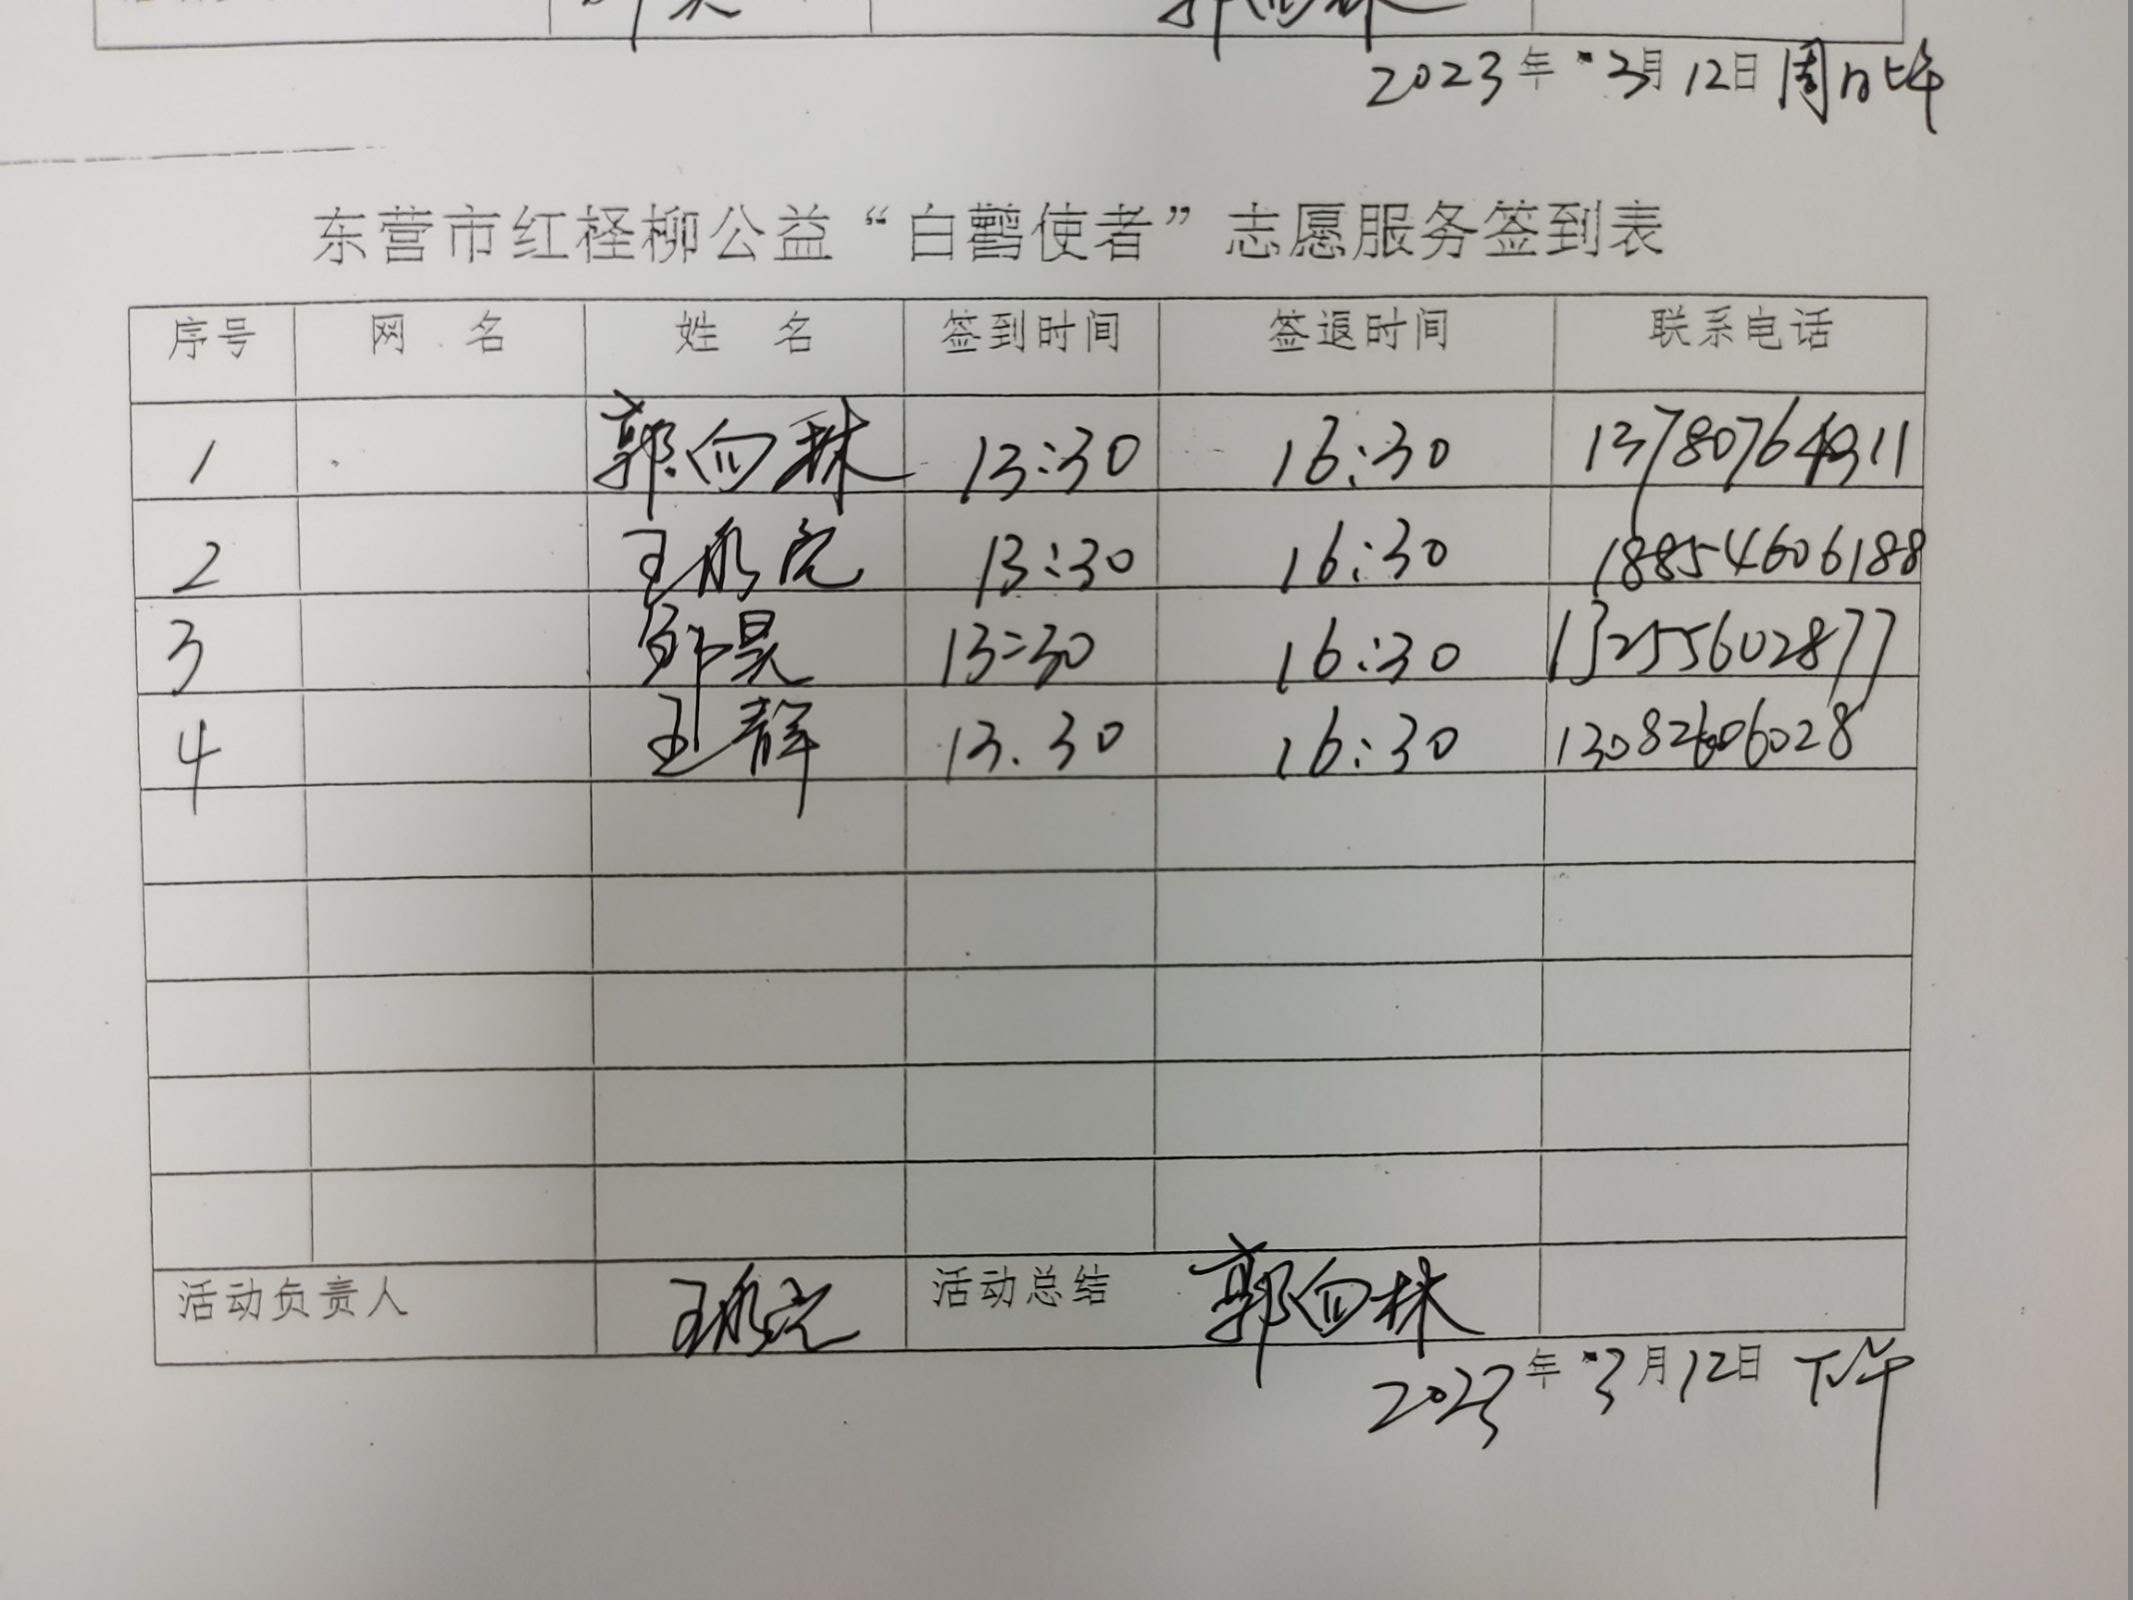 郭向林
2023年3月12日周日上午
东营市红柽柳公益“白鹳使者”志愿服务签到表
序号 网 名 姓 名 签到时间 签退时间 联系电话
1 郭向林 13:30 16:30 13780764911
2 13:30 16:30 18854606188
3 邱昊 13:30 16:30 13255602877
4 王群 13.30 16:30 13082606028
活动负责人 活动总结 郭向林
2023年3月12日 下午